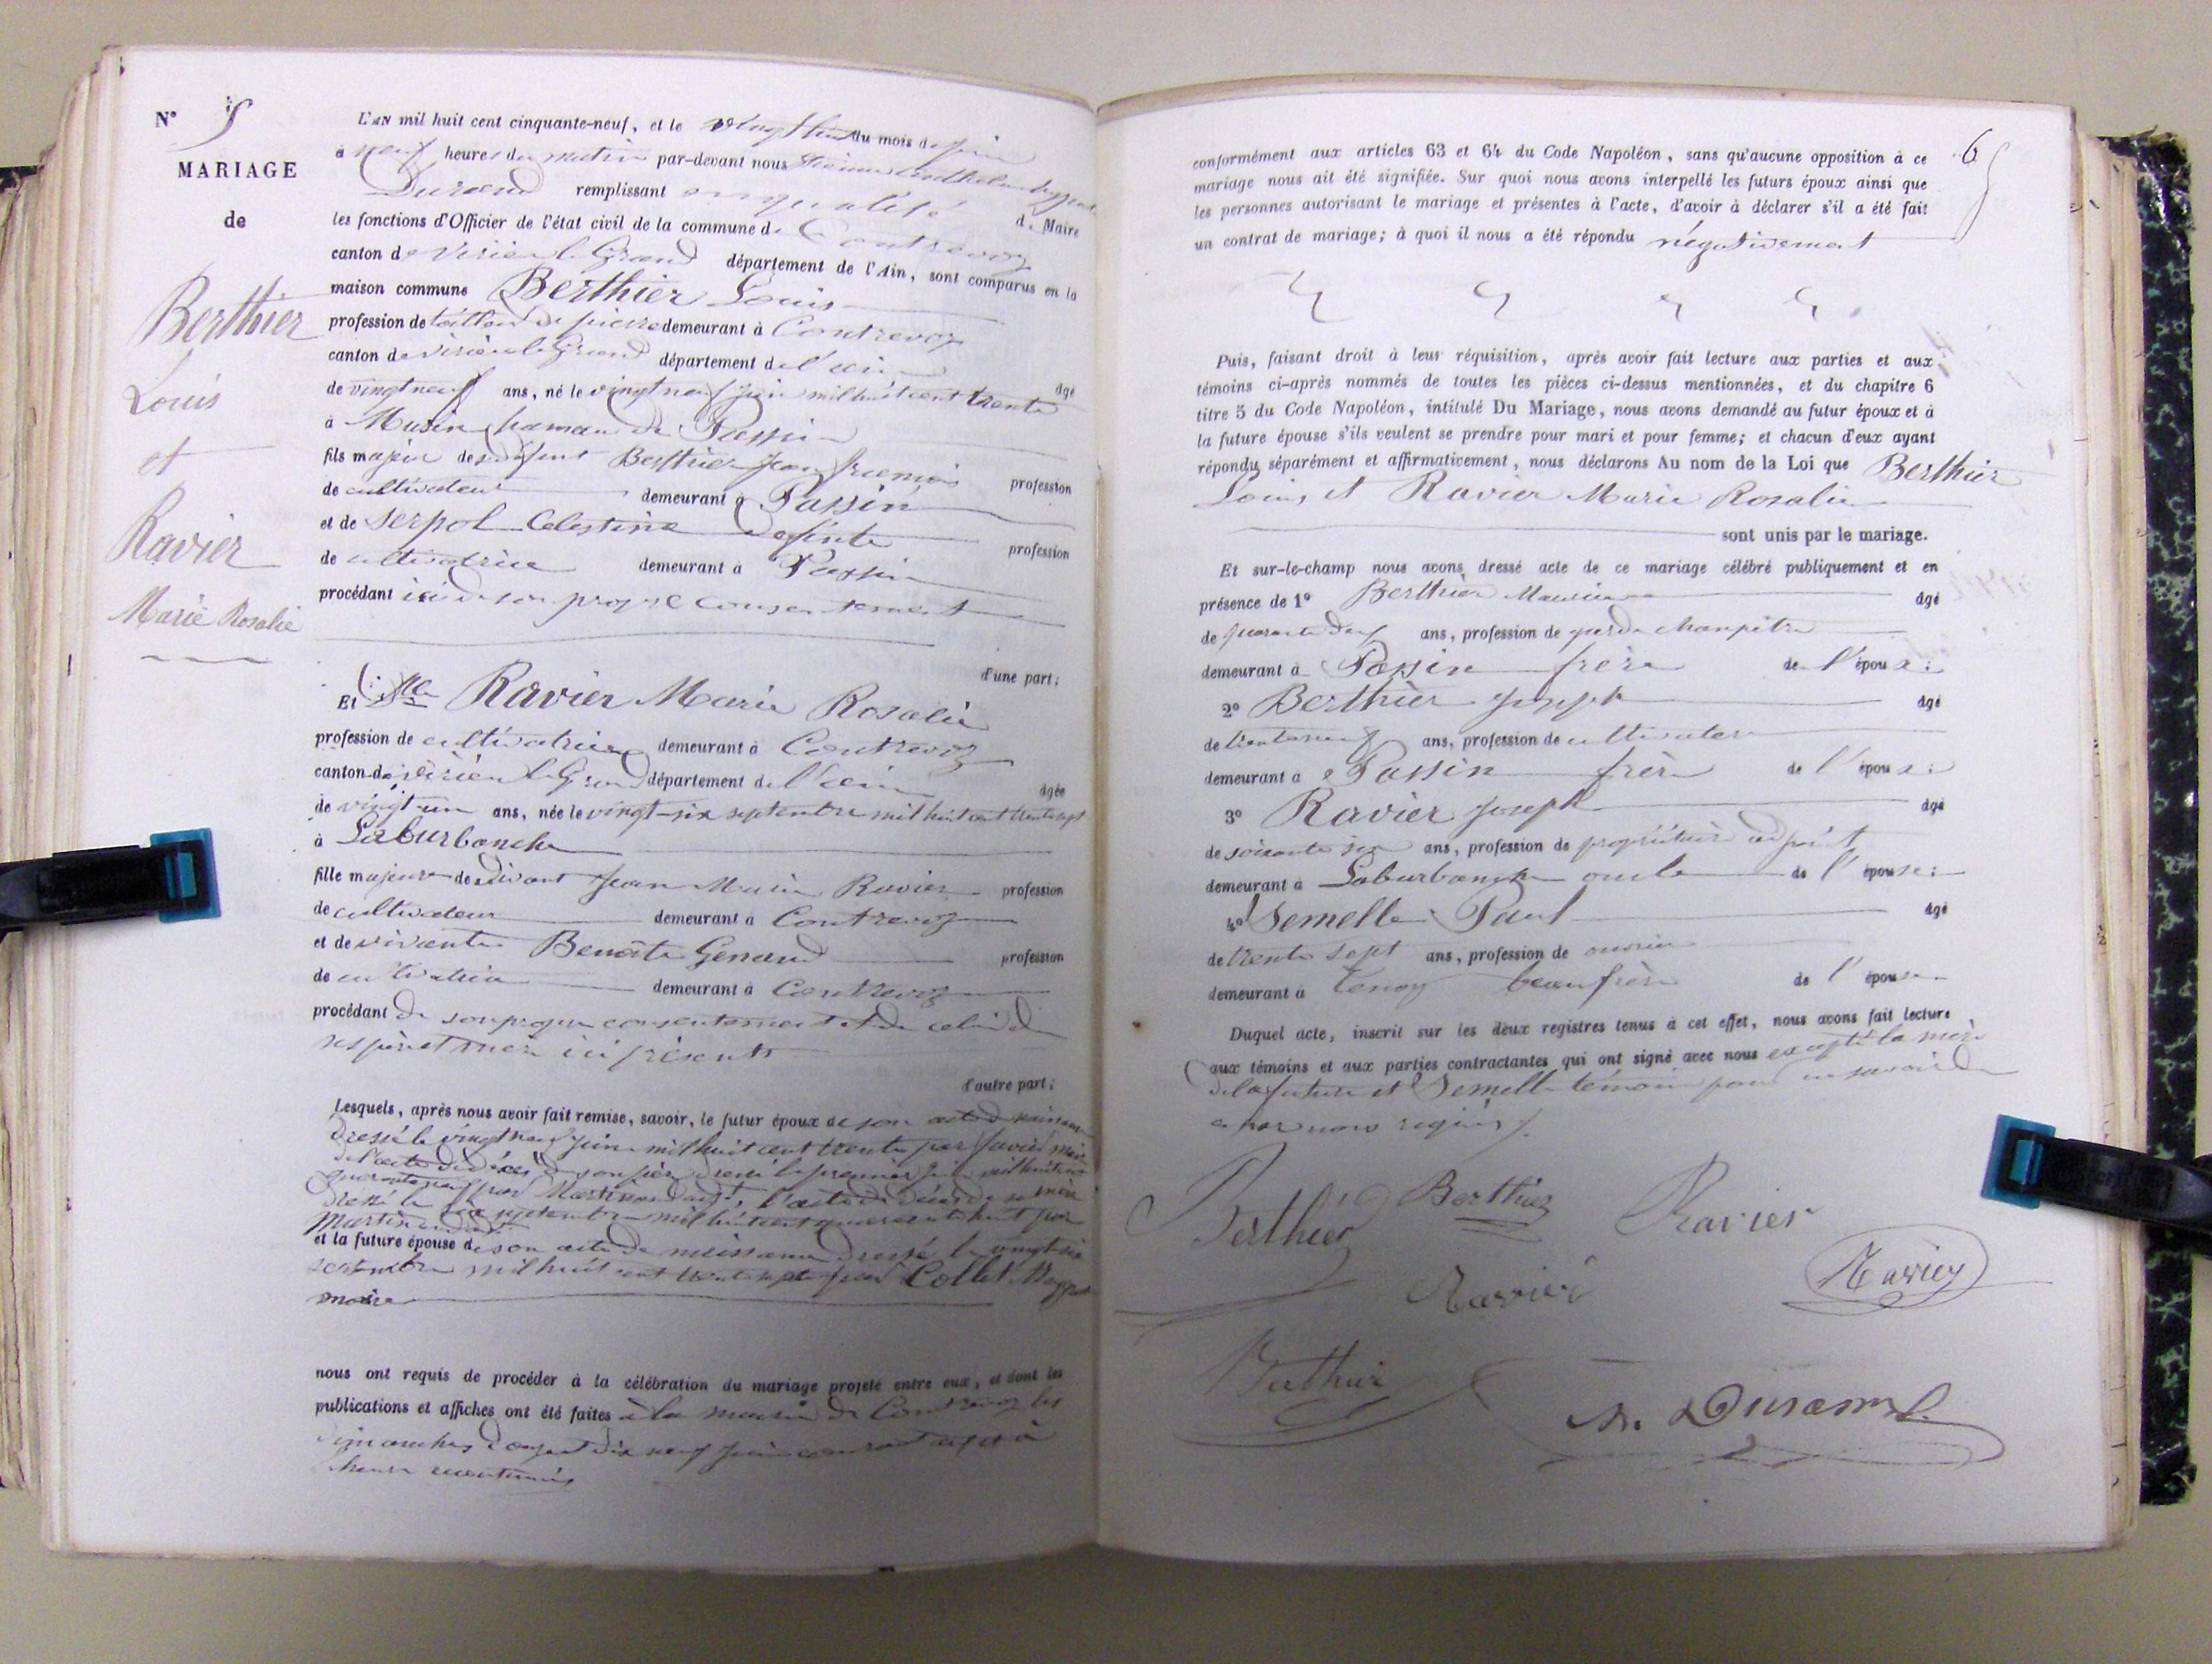 N° 5
MARIAGE
de
Berthier
Louis
et
Ravier
Marie Rosalie
L'AN mil huit cent cinquante-neuf, et le du mois de juin
à neuf heures du matin par-devant nous
Durand remplissant en qualité d. Maire
les fonctions d'Officier de l'état civil de la commune de Contrevoz
canton de Virieu le Grand département de l'Ain, sont comparus en la
maison commune Berthier Louis
profession de tailleur de pierre demeurant à Contrevoz
canton de Virieu le Grand département de l'ain âgé
de vingt neuf ans, né le vingt neuf juin mil huit cent trente
à Musin hameau de Passin
fils majeur de défunt Berthier Jean françois profession
de cultivateur demeurant à Passin
et de Serpol Celestine défunte profession
de cultivatrice demeurant à Passin
procédant ici de son propre consentement
d'une part;
Et Dlle Ravier Marie Rosalie
profession de cultivatrice demeurant à Contrevoz
canton de Virieu le Grand département de l'ain âgée
de vingt un ans, née le vingt-six septembre mil huit cent trente sept
à Laburbanche
fille majeure de vivant Jean Marie Ravier profession
de cultivateur demeurant à Contrevoz
et de vivante Benoite Genand profession
de cultivatrice demeurant à Contrevoz
procédant de son propre consentement et de celui de
ses père et mère ici présents
d'autre part;
Lesquels, après nous avoir fait remise, savoir, le futur époux de son acte de naissance
dressé le vingt neuf juin mil huit cent trente par maire
de l'acte de décès de son père dressé le premier mil huit cent
quarante neuf par Martinand adjt, l'acte de décès de sa mère
dressé le septembre mil huit cent quarante huit par
Martinand adjt
et la future épouse de son acte de naissance dressé le vingt six
septembre mil huit cent trente sept par Collet
maire
nous ont requis de procéder à la célébration du mariage projeté entre eux, et dont les
publications et affiches ont été faites à la mairie de Contrevoz les
dimanches douze et dix neuf juin courant
heure accoutumée
6
conformément aux articles 63 et 64 du Code Napoléon, sans qu'aucune opposition à ce
mariage nous ait été signifiée. Sur quoi nous avons interpellé les futurs époux ainsi que
les personnes autorisant le mariage et présentes à l'acte, d'avoir à déclarer s'il a été fait
un contrat de mariage; à quoi il nous a été répondu négativement
Puis, faisant droit à leur réquisition, après avoir fait lecture aux parties et aux
témoins ci-après nommés de toutes les pièces ci-dessus mentionnées, et du chapitre 6
titre 5 du Code Napoléon, intitulé Du Mariage, nous avons demandé au futur époux et à
la future épouse s'ils veulent se prendre pour mari et pour femme; et chacun d'eux ayant
répondu séparément et affirmativement, nous déclarons Au nom de la Loi que Berthier
Louis et Ravier Marie Rosalie
sont unis par le mariage.
Et sur-le-champ nous avons dressé acte de ce mariage célébré publiquement et en
présence de 1° Berthier Maurice âgé
de quarante deux ans, profession de garde champêtre
demeurant à Passin frère de l'époux:
2° Berthier Joseph âgé
de trente neuf ans, profession de cultivateur
demeurant à Passin frère de l'époux:
3° Ravier Joseph âgé
de soixante six ans, profession de propriétaire adjoint
demeurant à Laburbanche oncle de l'épouse:
4° Semelle Paul âgé
de trente sept ans, profession de ouvrier
demeurant à Tenay beau frère de l'épouse
Duquel acte, inscrit sur les deux registres tenus à cet effet, nous avons fait lecture
aux témoins et aux parties contractantes qui ont signé avec nous excepté la mère
de la future et Semelle témoin pour ne savoir de
ce par nous requis
Berthier Berthier Ravier
Ravier Ravier
Berthier
Durand